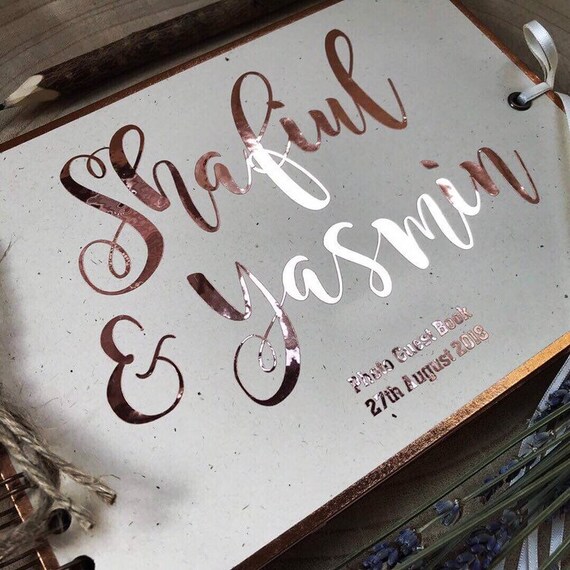 Shafiul
& Yasmin
Photo Guest Book
27th August 2018